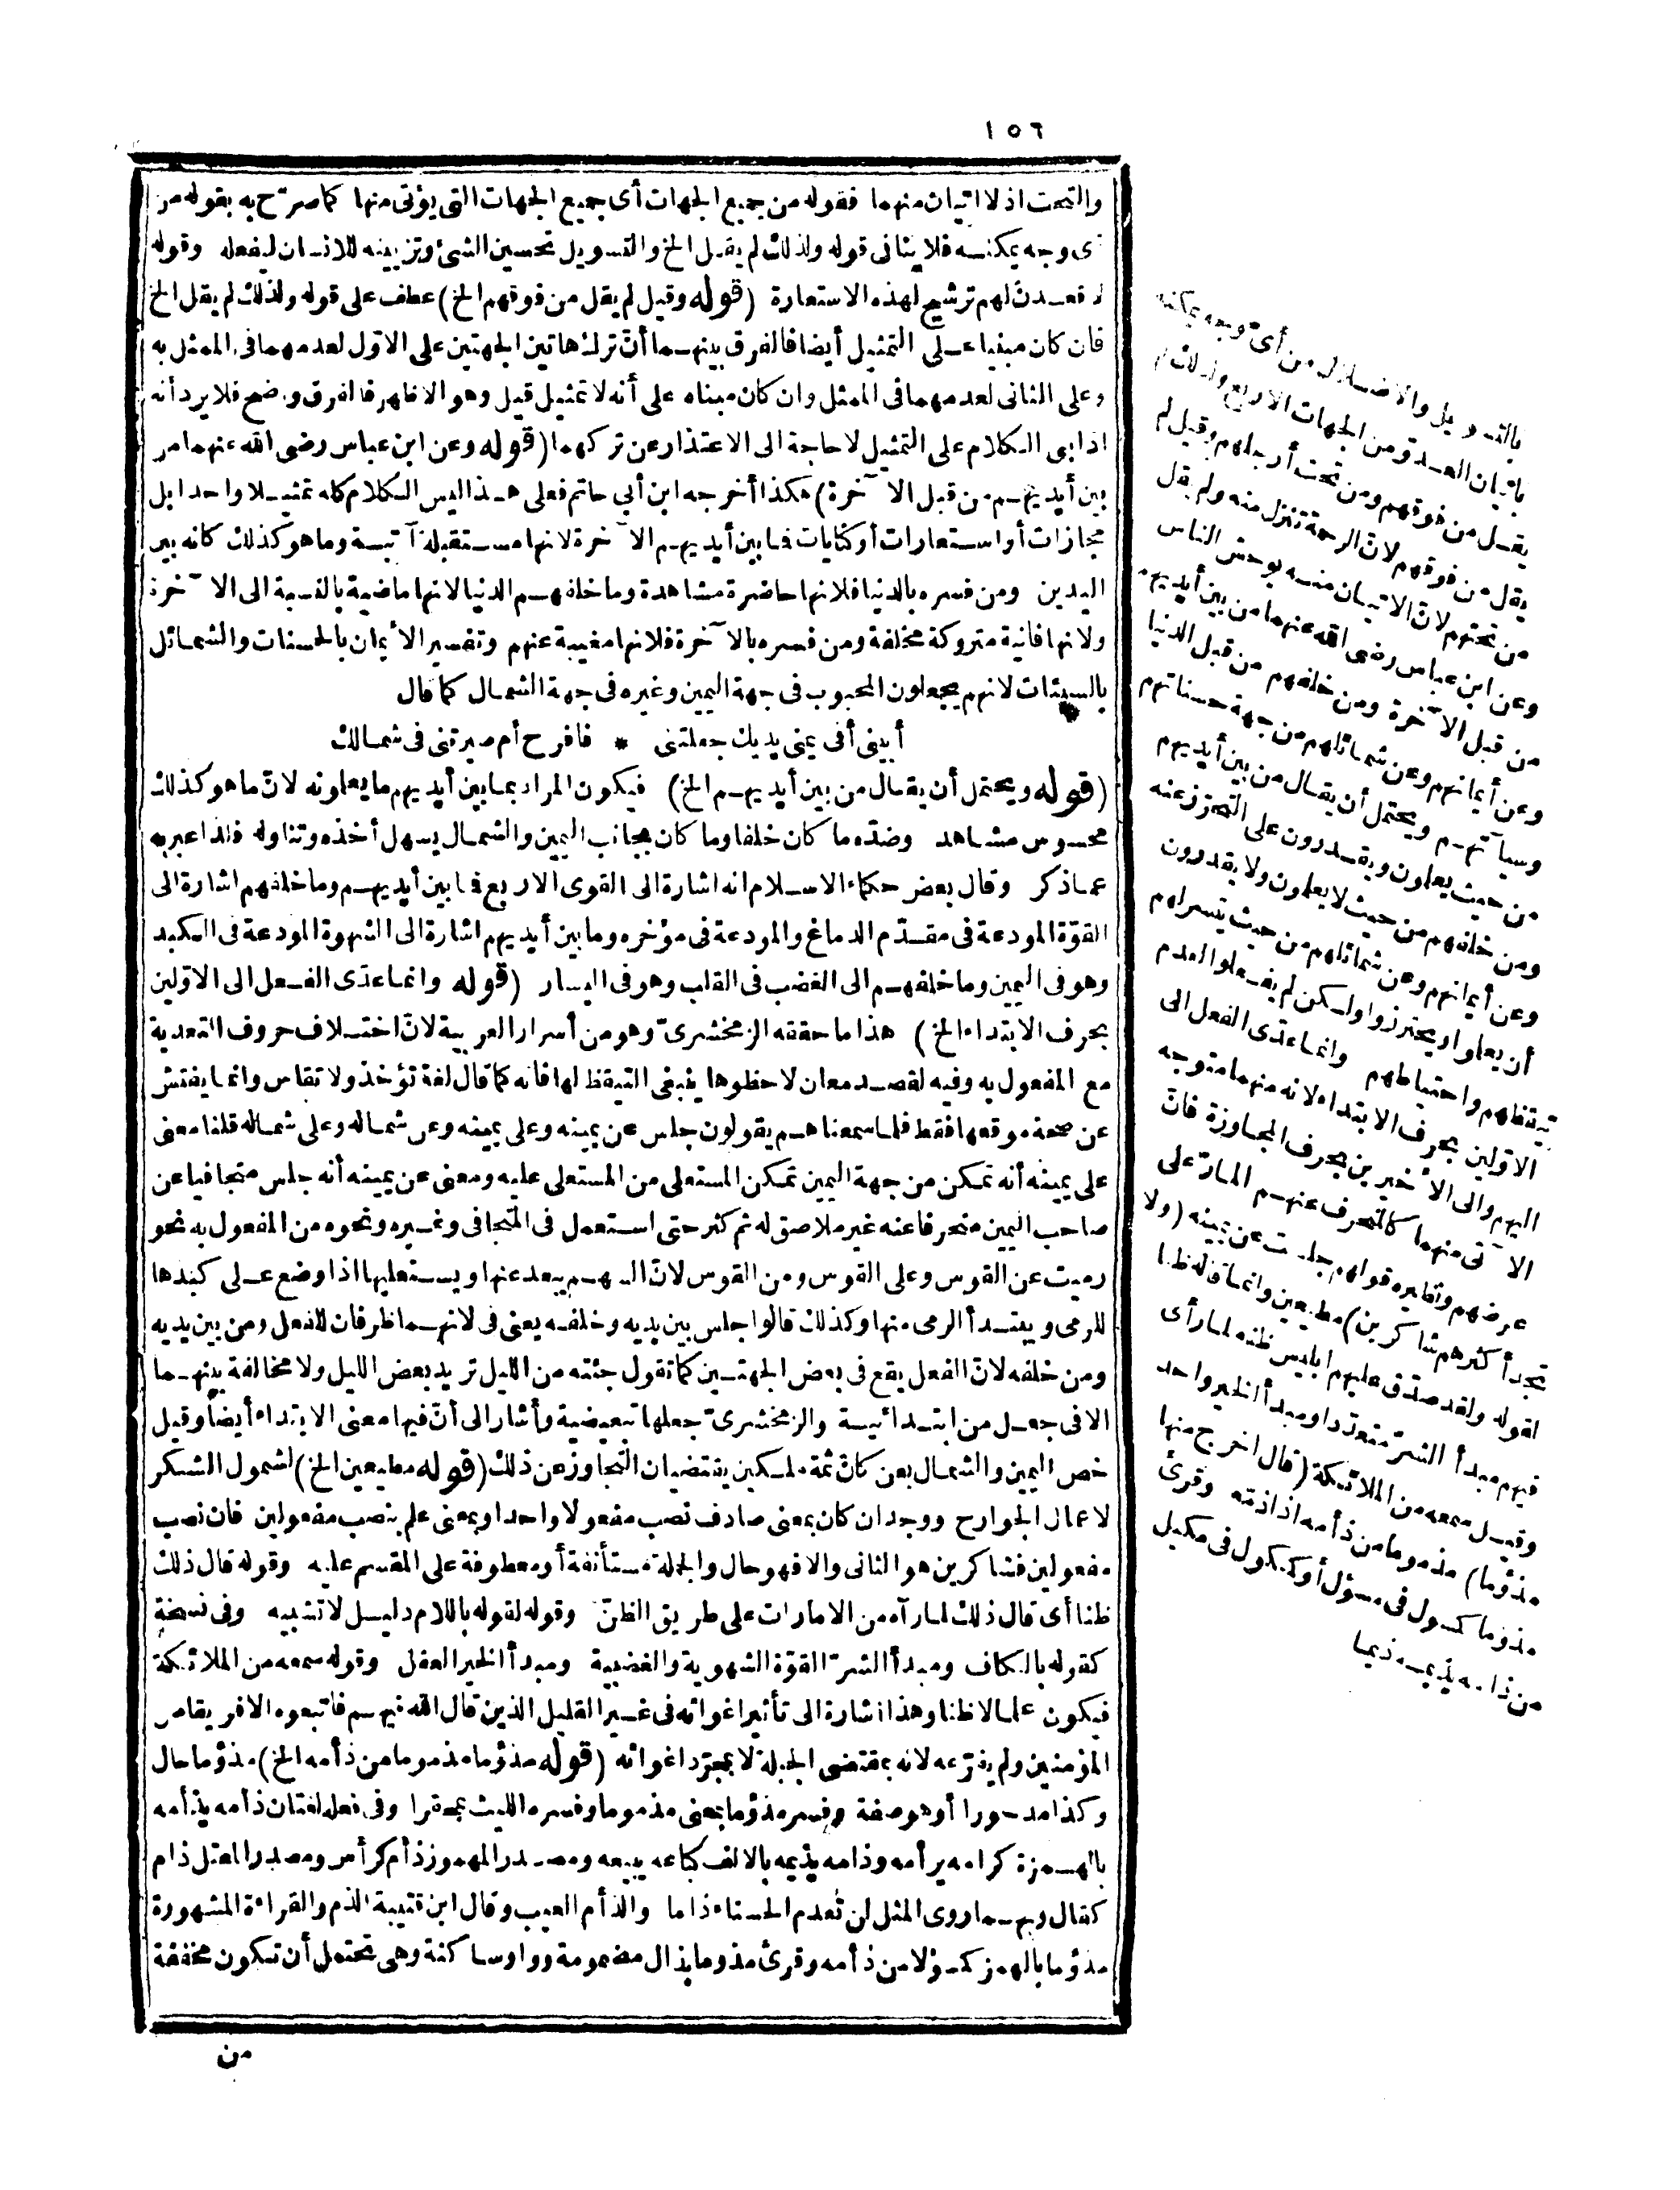 ١٥٦
والتحت اذ لا اتيان منهما فقوله من جميع الجهات أى جميع الجهات التى يؤتى منها كما صرّح به بقوله من
أى وجه يمكنه فلا ينافى قوله ولذلك لم يقل الخ والتسويل تحسين الشئ وتزيينه للانسان ليفعله وقوله
لاقعدنّ لهم ترشيح لهذه الاستعارة (قوله وقيل لم يقل من فوقهم الخ) عطف على قوله ولذلك لم يقل الخ
فان كان مبنيا على التمثيل أيضا فالفرق بينهما أنّ ترك هاتين الجهتين على الاوّل لعدمهما فى الممثل به
وعلى الثانى لعدمهما فى الممثل وان كان مبناه على أنه لا تمثيل قيل وهو الاظهر فالفرق واضح فلا يرد أنه
اذا بنى الكلام على التمثيل لا حاجة الى الاعتذار عن تركهما (قوله وعن ابن عباس رضى الله عنهما من
بين أيديهم من قبل الآخرة) هكذا أخرجه ابن أبي حاتم فعلى هذا ليس الكلام كله تمثيلا واحدا بل
مجازات أو استعارات أو كنايات فما بين أيديهم الآخرة لانها مستقبلة آتية وما هو كذلك كانه بين
اليدين ومن فسره بالدنيا فلانها حاضرة مشاهدة وما خلفهم الدنيا لانها ماضية بالنسبة الى الآخرة
ولانها فانية متروكة مخلفة ومن فسره بالآخرة فلانها مغيبة عنهم وتفسير الأيمان بالحسنات والشمائل
بالسيئات لانهم يجعلون المحبوب فى جهة اليمين وغيره فى جهة الشمال كما قال
أبينى أفى يمنى يديك جعلتنى * فافرح أم صيرتنى فى شمالك
(قوله ويحتمل أن يقال من بين أيديهم الخ) فيكون المراد بما بين أيديهم ما يعلمونه لانّ ما هو كذلك
محسوس مشاهد وضدّه ما كان خلفا وما كان بجانب اليمين والشمال يسهل أخذه وتناوله فلذا عبر به
عما ذكر وقال بعض حكماء الاسلام انه اشارة الى القوى الاربع فما بين أيديهم وما خلفهم اشارة الى
القوّة المودعة فى مقدّم الدماغ والمودعة فى مؤخره وما بين أيديهم اشارة الى الشهوة المودعة فى الكبد
وهو فى اليمين وما خلفهم الى الغضب فى القلب وهو فى اليسار (قوله وانما عدّى الفعل الى الاوّلين
بحرف الابتداء الخ) هذا ما حققه الزمخشرىّ وهو من أسرار العربية لانّ اختلاف حروف التعدية
مع المفعول به وفيه لقصد معان لاحظوها ينبغى التيقظ لها فانه كما قال لغة تؤخذ ولا تقاس وانما يفتش
عن صحة موقعها فقط فلما سمعناهم يقولون جلس عن يمينه وعلى يمينه وعن شماله وعلى شماله قلنا معنى
على يمينه أنه تمكن من جهة اليمين تمكن المستعلى من المستعلى عليه ومعنى عن يمينه أنه جلس متجافيا عن
صاحب اليمين منحرفا عنه غير ملاصق له ثم كثر حتى استعمل فى المتجافى وغيره ونحوه من المفعول به نحو
رميت عن القوس وعلى القوس ومن القوس لانّ السهم يبعد عنها ويستعليها اذا وضع على كبدها
للرمى ويبتدأ الرمى منها وكذلك قالوا جلس بين يديه وخلفه يعنى فى لانهما ظرفان للفعل ومن بين يديه
ومن خلفه لانّ الفعل يقع فى بعض الجهتين كما تقول جئته من الليل تريد بعض الليل ولا مخالفة بينهما
الا فى جعل من ابتدائية والزمخشرىّ جعلها تبعيضية وأشار الى أنّ فيها معنى الابتداء أيضا وقيل
خص اليمين والشمال بعن كانّ ثمة ملكين يقتضيان التجاوز عن ذلك (قوله مطيعين الخ) لشمول الشكر
لاعمال الجوارح ووجد ان كان بمعنى صادف نصب مفعولا واحدا وبمعنى علم ينصب مفعولين فان نصب
مفعولين فشاكرين هو الثانى والا فهو حال والجملة مستأنفة أو معطوفة على المقسم عليه وقوله قال ذلك
ظنا أى قال ذلك لما رآه من الامارات على طريق الظنّ وقوله لقوله باللام دليل لا تشبيه وفى نسخة
كقوله بالكاف ومبدأ الشرّ القوّة الشهوية والغضبية ومبدأ الخير العقل وقوله سمعه من الملائكة
فيكون علما لا ظنا وهذا اشارة الى تأثير اغوائه فى غير القليل الذين قال الله فيهم فاتبعوه الا فريقا من
المؤمنين ولم يفرّعه لانه بمقتضى الجبلة لا بمجرّد اغوائه (قوله مذؤما مذموما من ذأمه الخ) مذؤما حال
وكذا مدحورا أو هو صفة وفسر مذؤما بمعنى مذموما وفسره الليث بمحقرا وفى فعله لغتان ذأمه يذأمه
بالهمزة كرأمه يرأمه وذامه يذيمه بالالف كباعه يبيعه ومصدر المهموز ذأم كرأس ومصدر المعتل ذام
كقال وبهما روى المثل لن تعدم الحسناء ذاما والذأم العيب وقال ابن قتيبة الذم والقراءة المشهورة
مذؤما بالهمز كمسؤلا من ذأمه وقرئ مذوما بذال مضمومة وواو ساكنة وهى تحتمل أن تكون مخففة
من
بالتسويل والاضلال من أىّ وجه يمكنه
باتيان العدوّ من الجهات الاربع ولذلك لم
يقل من فوقهم ومن تحت أرجلهم وقيل لم
يقل من فوقهم لانّ الرحمة تنزل منه ولم يقل
من تحتهم لانّ الاتيان منه يوحش الناس
وعن ابن عباس رضى الله عنهما من بين أيديهم
من قبل الآخرة ومن خلفهم من قبل الدنيا
وعن أيمانهم وعن شمائلهم من جهة حسناتهم
وسيآتهم ويحتمل أن يقال من بين أيديهم
من حيث يعلمون ويقدرون على التحرّز عنه
ومن خلفهم من حيث لا يعلمون ولا يقدرون
وعن أيمانهم وعن شمائلهم من حيث تيسر لهم
أن يعلموا ويحترزوا ولكن لم يفعلوا لعدم
تيقظهم واحتياطهم وانما عدّى الفعل الى
الاوّلين بحرف الابتداء لانه منهما متوجه
اليهم والى الأخيرين بحرف المجاوزة فانّ
الآتى منهما كالمنحرف عنهم المارّ على
عرضهم ونظيره قولهم جلست عن يمينه (ولا
تجد أكثرهم شاكرين) مطيعين وانما قاله ظنا
لقوله ولقد صدّق عليهم ابليس ظنه لما رأى
فيهم مبدأ الشرّ متعدّدا ومبدأ الخير واحد
وقيل سمعه من الملائكة (قال اخرج منها
مذؤما) مذموما من ذأمه اذا ذمّه وقرئ
مذوما كمسول فى مسؤل أو ككول فى مكيل
من ذامه يذيمه ذيما